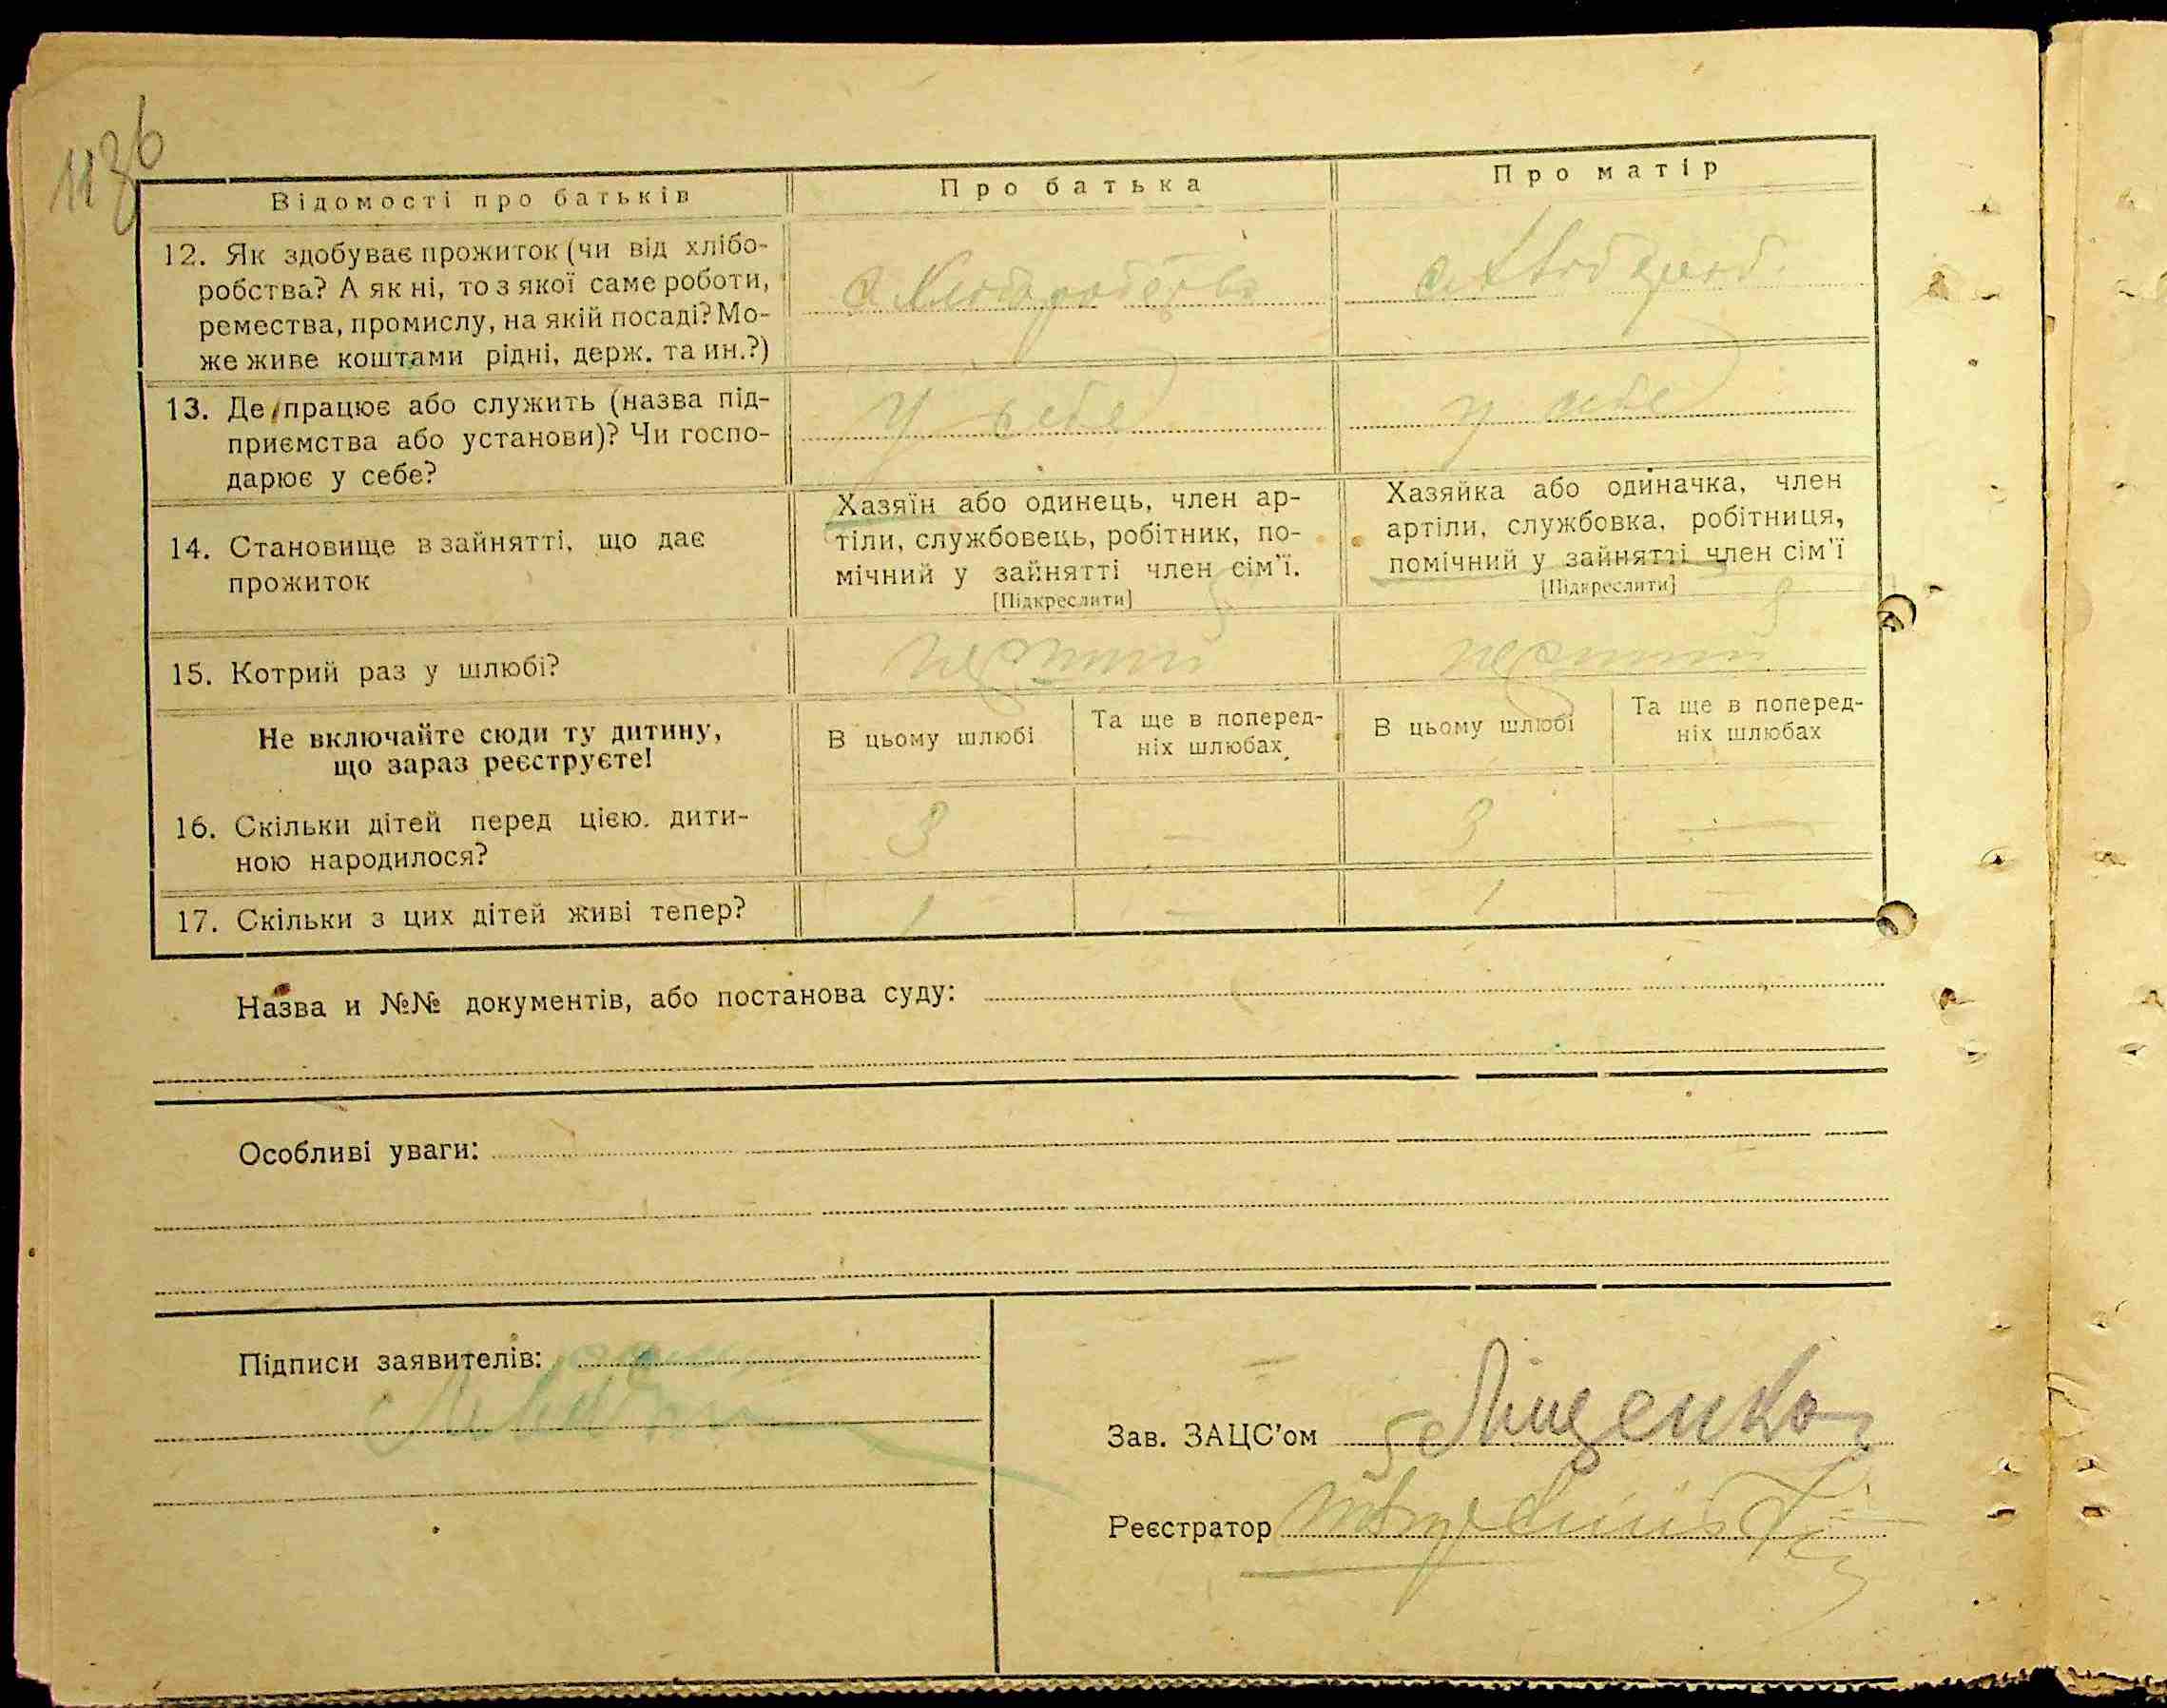 Відомості про батьків
Про батька
Про матір
12. Як здобуває прожиток (чи від хлібо-
робства? А як ні, то з якої саме роботи,
ремества, промислу, на якій посаді? Мо-
же живе коштами рідні, держ. та ин.?)
13. Де працює або служить (назва під-
приємства або установи)? Чи госпо-
дарює у себе?
у себе
у себе
14. Становище в зайнятті, що дає
прожиток
Хазяїн або одинець, член ар-
тіли, службовець, робітник, по-
мічний у зайнятті член сім'ї.
[Підкреслити]
Хазяйка або одиначка, член
артіли, службовка, робітниця,
помічний у зайнятті член сім'ї
[Підкреслити]
15. Котрий раз у шлюбі?
перший
перший
Не включайте сюди ту дитину,
що зараз реєструєте!
В цьому шлюбі
Та ще в поперед-
ніх шлюбах
В цьому шлюбі
Та ще в поперед-
ніх шлюбах
16. Скільки дітей перед цією. дити-
ною народилося?
3 — 3 —
17. Скільки з цих дітей живі тепер?
1 — 1 —
Назва и №№ документів, або постанова суду:
Особливі уваги:
Підписи заявителів:
Зав. ЗАЦС'ом
Реєстратор